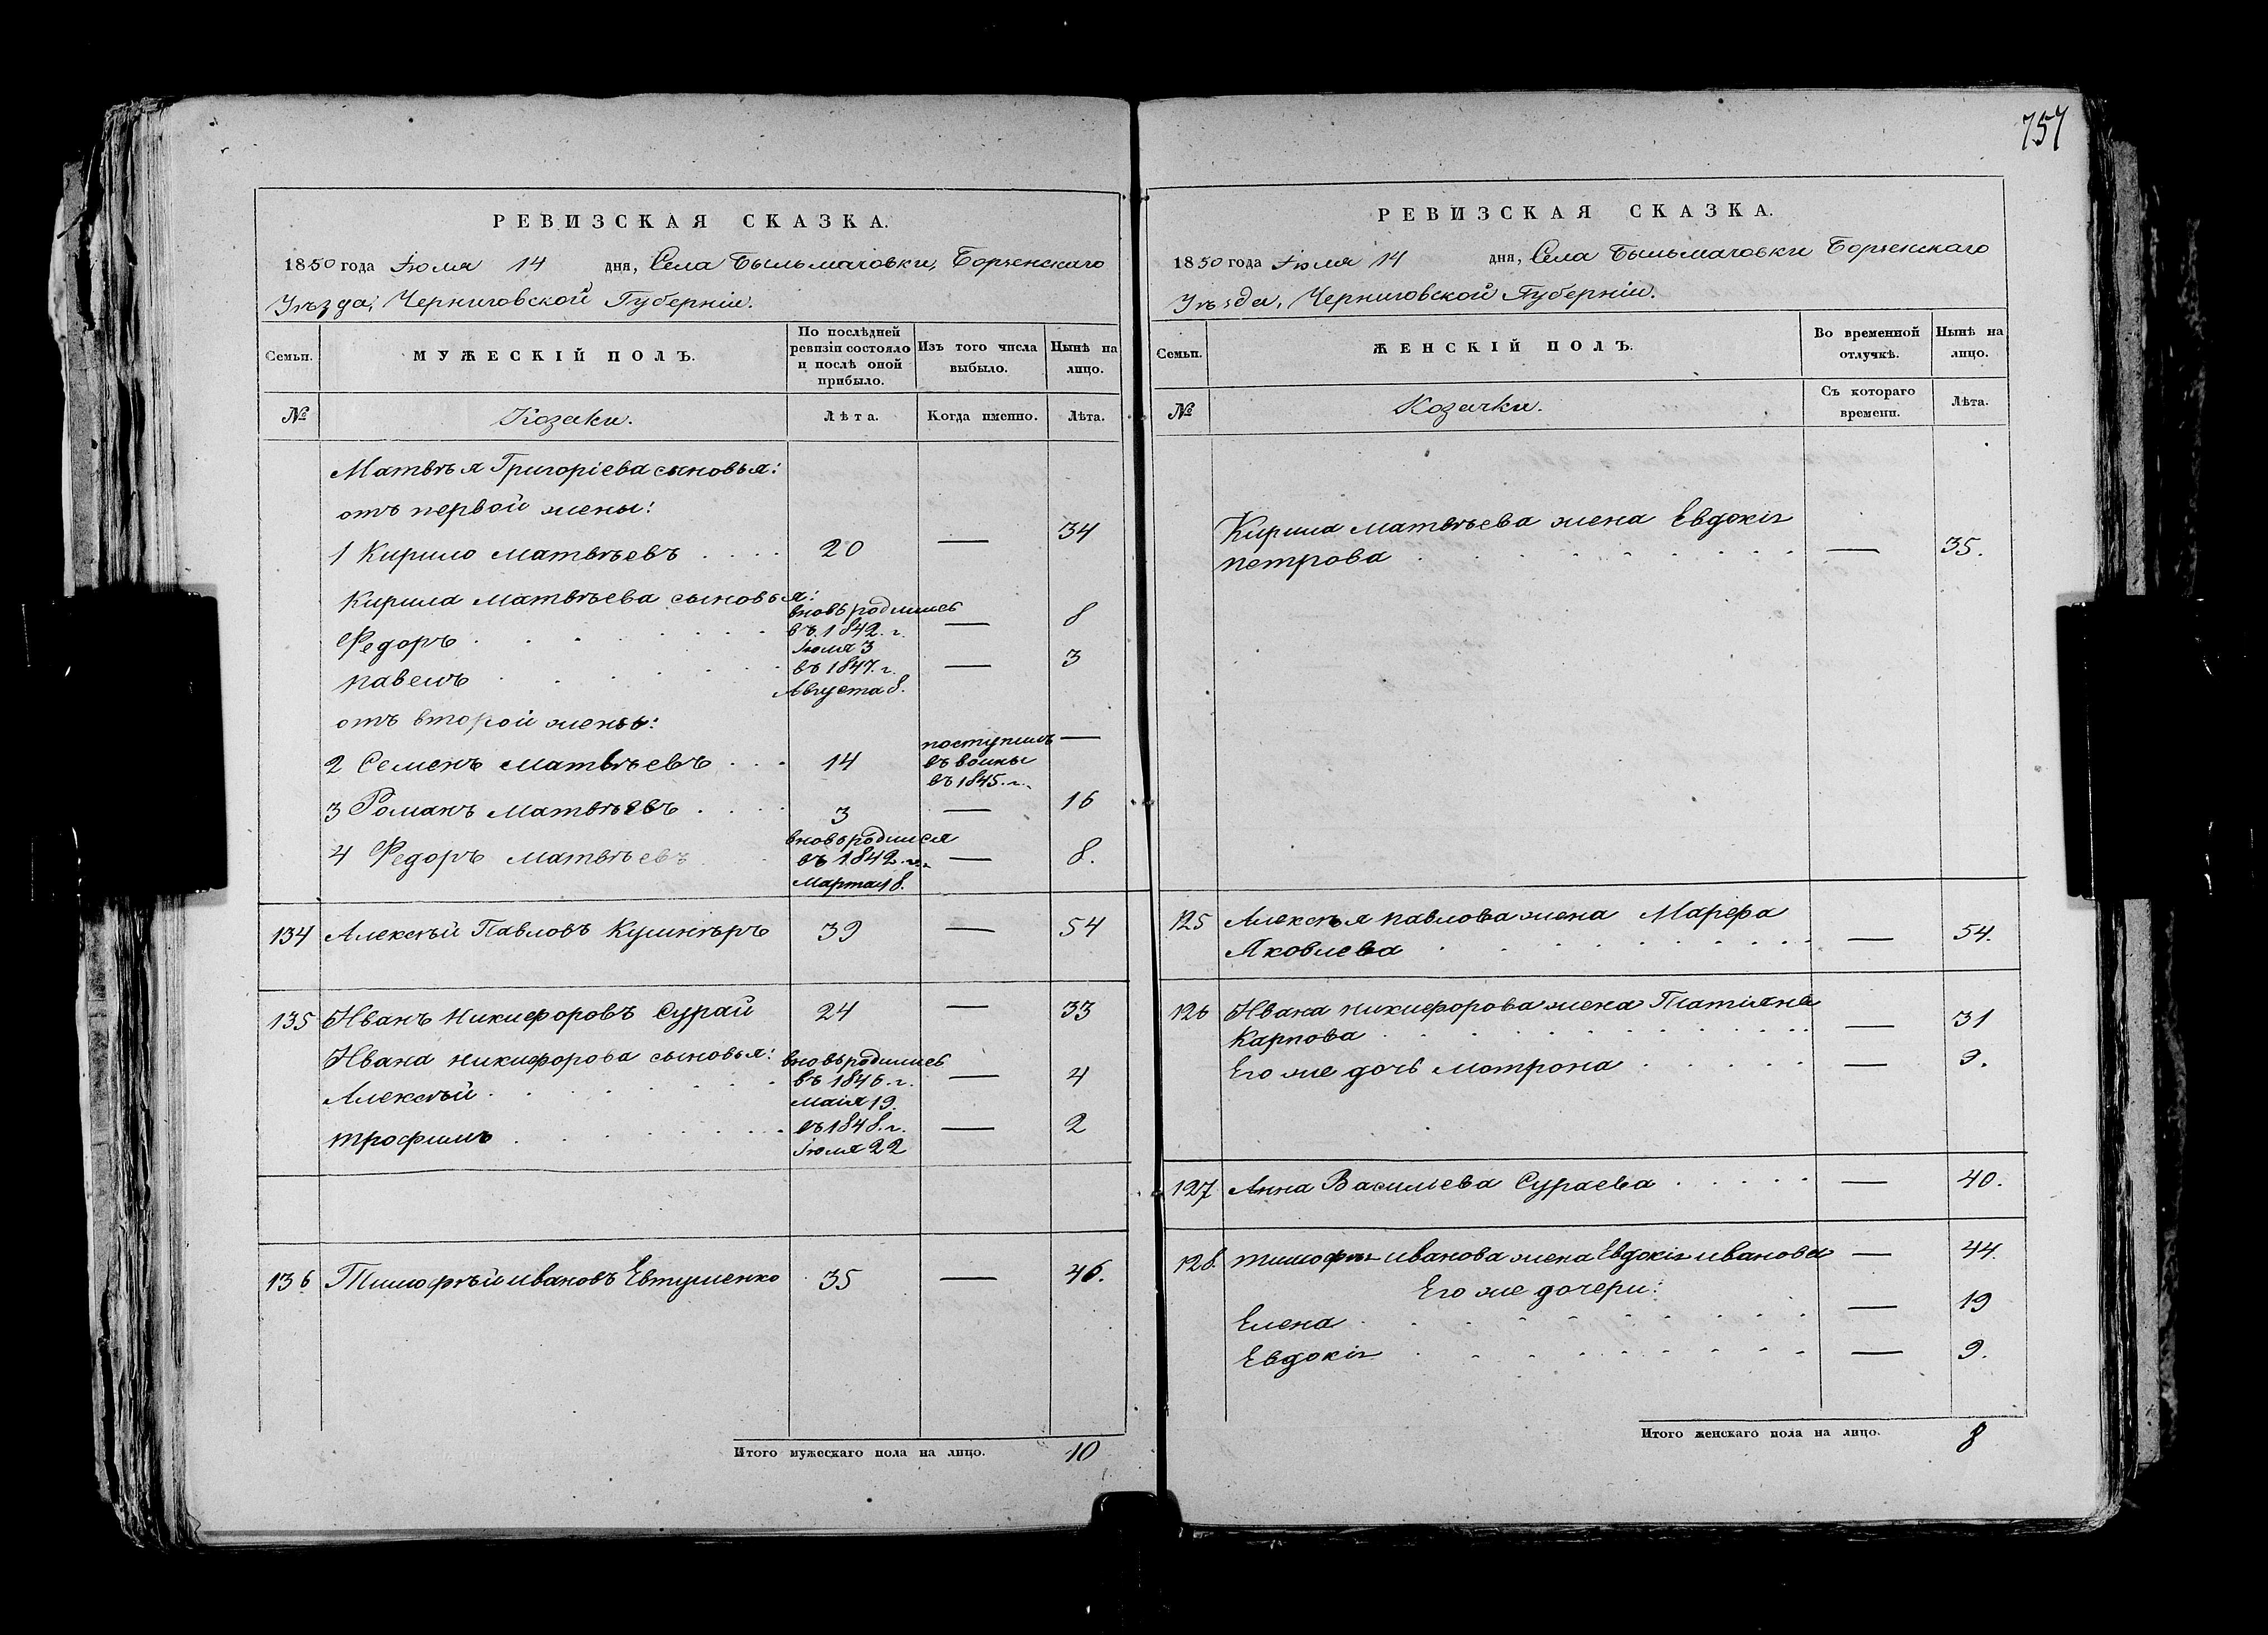 757
РЕВИЗСКАЯ СКАЗКА.
1850 года Іюля 14 дня, Села Быльмачовки, Борзенскаго
Уѣзда, Черниговской Губерніи.
Семьи.
МУЖЕСКІЙ ПОЛЪ.
По послѣдней
ревизіи состояло
и послѣ оной
прибыло.
Изъ того числа
выбыло.
Нынѣ на
лицо.
№
Козаки.
Лѣта.
Когда именно.
Лѣта.
Матвѣя Григоріева сыновья:
отъ первой жены:
1 Кирило Матвѣевъ 20 — 34
Кирила Матвѣева сыновья:
вновь родились
Федоръ въ 1842. г. — 8
Іюля 3
Павелъ въ 1847. г. — 3
Августа 8.
отъ второй жены:
поступилъ —
2 Семенъ Матвѣевъ 14 въ воины
въ 1845. г.
3 Романъ Матвѣевъ 3 — 16
вновь родился
4 Федоръ Матвѣевъ въ 1842. г. — 8.
Марта 18.
134 Алексѣй Павловъ Кушнѣръ 39 — 54
135 Иванъ Никифоровъ Сурай 24 — 33
Ивана Никифорова сыновья: вновь родились
въ 1846. г. — 4
Алексѣй Маія 19.
Трофимъ въ 1848. г. — 2
Іюля 22
136 Тимофѣй Ивановъ Евтушенко 35 — 46.
Итого мужескаго пола на лицо. 10
РЕВИЗСКАЯ СКАЗКА.
1850 года Іюля 14 дня, Села Быльмачовки Борзенскаго
Уѣзда, Черниговской Губерніи.
Семьи.
ЖЕНСКІЙ ПОЛЪ.
Во временной
отлучкѣ.
Нынѣ на
лицо.
№
Козачки.
Съ котораго
времени.
Лѣта.
Кирила Матвѣева жена Евдокія
Петрова — 35.
125 Алексѣя Павлова жена Марѳа
Яковлева — 54.
126 Ивана Никифорова жена Татіяна
Карпова — 31
Его же дочь Мотрона — 9.
127 Анна Васильева Сураева — 40.
128. Тимофѣя Иванова жена Евдокія Иванова — 44.
Его же дочери:
Елена — 19
Евдокія — 9.
Итого женскаго пола на лицо. 8